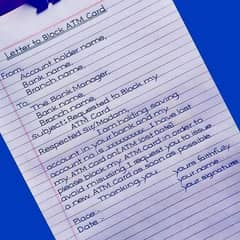 Letter to Block ATM Card
From,
Account holder name,
Bank name,
Branch name.
To The Bank Manager,
Bank name,
Branch name.
Subject : Requested to Block my
ATM Card
Respected Sir/Madam,
I am holding saving
account in your bank and my
account no. is xxxxxxxxxx. I have lost
my ATM card or ATM lost better
please block my ATM Card in order to
avoid missusing. I request you to issue
a new ATM Card as soon as possible.
Thanking you
yours faithfully
your name
your signature
Place :-
Date :-